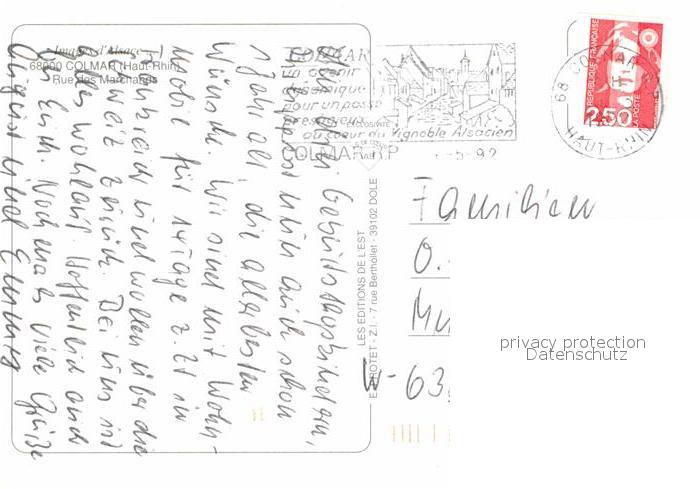 Images d'Alsace
68000 COLMAR (Haut-Rhin)
Rue des Marchands
COLMAR
un avenir
dynamique
pour un passé
prestigieux
au coeur du Vignoble Alsacien
COLMAR R.P
-5-92
68 COLMAR R.P.
HAUT-RHIN
REPUBLIQUE FRANÇAISE
2,50
LA POSTE
LES EDITIONS DE L'EST
ESTEROTET - Z.I. - 7 rue Bertholet - 39102 DOLE
Geburtstagskindern,
nun auch schon
1 Jahr alt, die allerbesten
Wünsche. Wir sind mit Wohn-
mobil für 14 Tage z.Zt in
Frankreich und wollen über die
Schweiz zurück. Bei uns ist
alles wohlauf. Hoffentlich auch
bei Euch. Nochmals viele Grüße
und
Familien
O.
Mu
W-63
privacy protection
Datenschutz